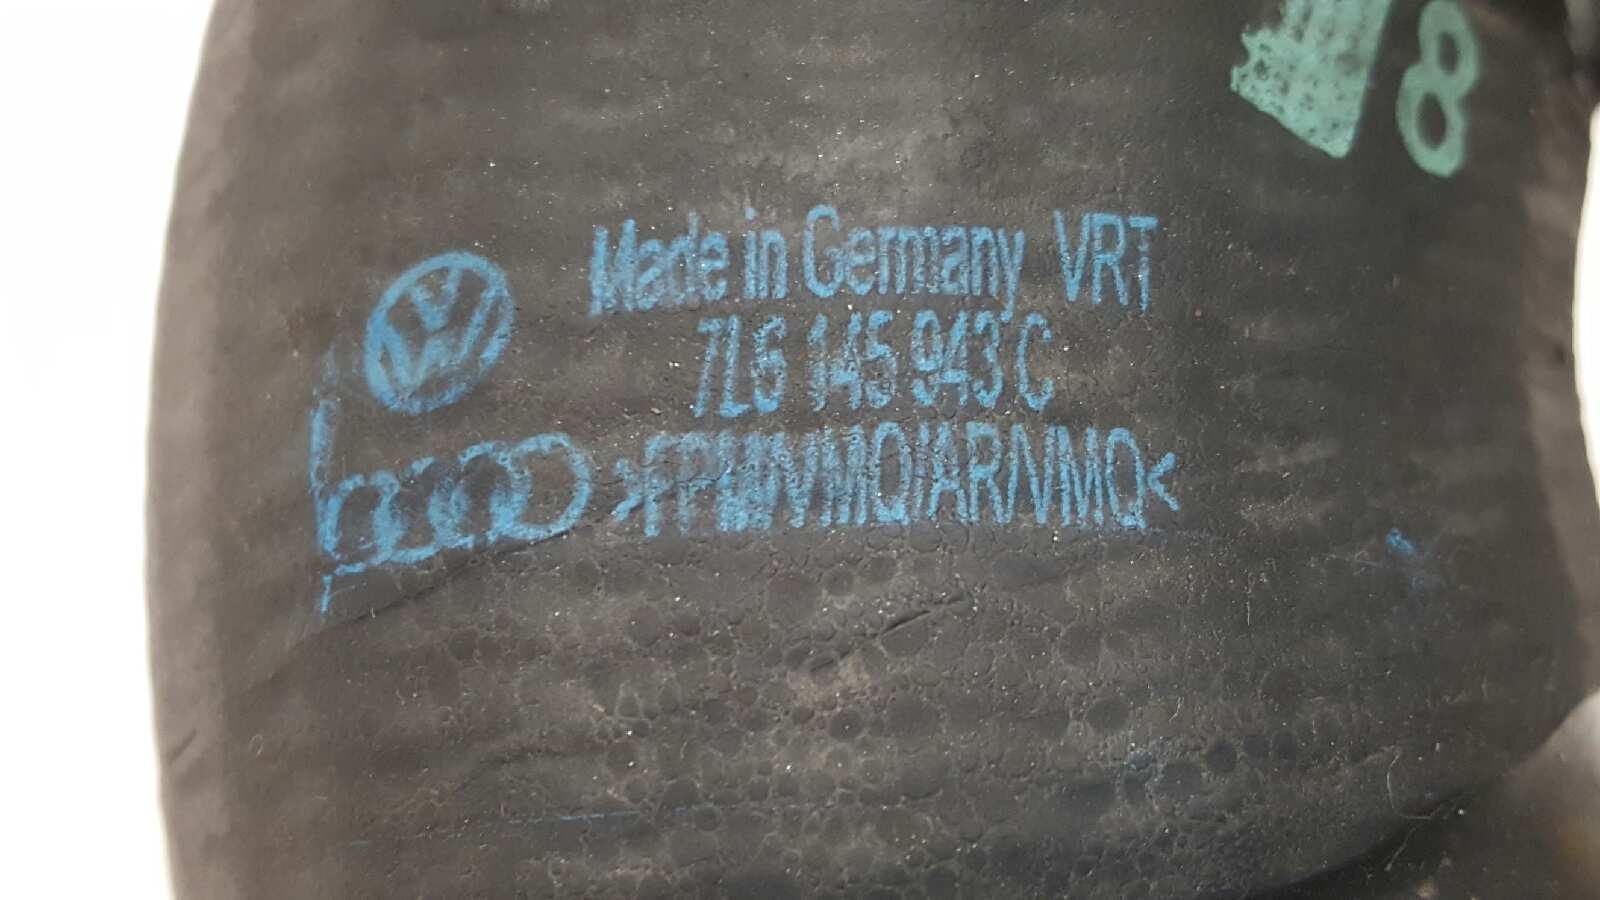 8
Made in Germany VRT
7L6 145 943 C
>FPM/VMQ/AR/VMQ<